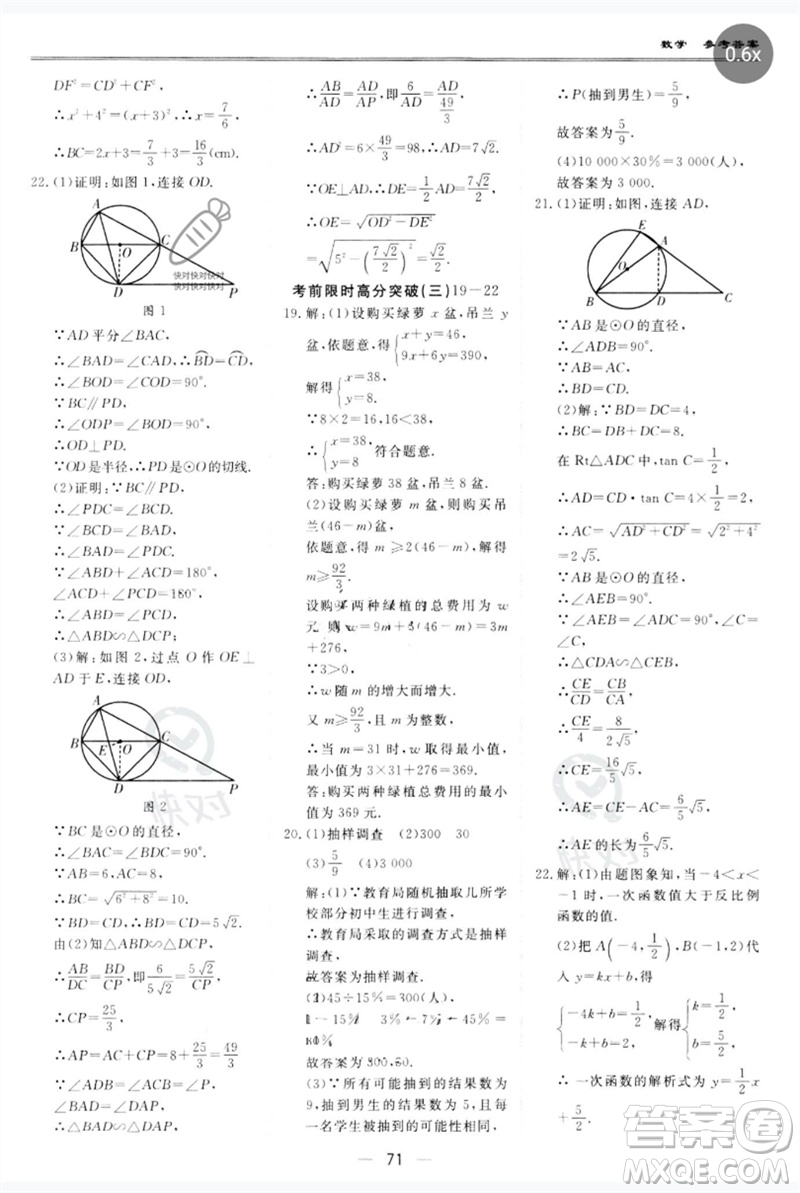 数学 参考答案
0.6x
DF²=CD²+CF²,
∴x²+4²=(x+3)²,∴x=7/6
∴BC=2x+3=7/3+3=16/3(cm).
22.(1)证明:如图1,连接OD.
A
B
O
C
D
P
快对快对快对
快对快对快对
图1
∵AD平分∠BAC,
∴∠BAD=∠CAD,∴BD=CD
∴∠BOD=∠COD=90°.
∵BC∥PD,
∴∠ODP=∠BOD=90°.
∴OD⊥PD.
∵OD是半径,∴PD是⊙O的切线.
(2)证明:∵BC∥PD,
∴∠PDC=∠BCD.
∵∠BCD=∠BAD,
∴∠BAD=∠PDC.
∵∠ABD+∠ACD=180°,
∠ACD+∠PCD=180°,
∴∠ABD=∠PCD.
∴△ABD∽△DCP.
(3)解:如图2,过点O作OE⊥
AD于E,连接OD,
A
B
E
O
C
D
P
图2
∵BC是⊙O的直径,
∴∠BAC=∠BDC=90°.
∵AB=6,AC=8,
∴BC=√(6²+8²)=10.
∵BD=CD,∴BD=CD=5√2.
由(2)知△ABD∽△DCP,
∴AB/DC=BD/CP,即6/5√2=5√2/CP,
∴CP=25/3,
∴AP=AC+CP=8+25/3=49/3
∵∠ADB=∠ACB=∠P,
∠BAD=∠DAP,
∴△BAD∽△DAP.
∴AB/AD=AD/AP,即6/AD=AD/(49/3)
∴AD²=6×49/3=98,∴AD=7√2.
∵OE⊥AD,∴DE=1/2AD=7√2/2
∴OE=√(OD²-DE²)
=√(5²-(7√2/2)²)=√2/2.
考前限时高分突破(三)19-22
19.解:(1)设购买绿萝x盆,吊兰y
盆,依题意,得{x+y=46,9x+6y=390,
解得{x=38,y=8.
∵8×2=16,16<38,
∴{x=38,y=8符合题意.
答:购买绿萝38盆,吊兰8盆.
(2)设购买绿萝m盆,则购买吊
兰(46-m)盆,
依题意,得m≥2(46-m),解得
m≥92/3.
设购买两种绿植的总费用为w
元,则w=9m+6(46-m)=3m
+276,
∵3>0,
∴w随m的增大而增大.
又m≥92/3,且m为整数,
∴当m=31时,w取得最小值,
最小值为3×31+276=369.
答:购买两种绿植总费用的最小
值为369元.
20.(1)抽样调查 (2)300 30
(3)5/9 (4)3 000
解:(1)∵教育局随机抽取几所学
校部分初中生进行调查,
∴教育局采取的调查方式是抽样
调查,
故答案为抽样调查.
(2)45÷15%=300(人),
故答案为300,30.
(3)∵所有可能抽到的结果数为
9,抽到男生的结果数为5,且每
一名学生被抽到的可能性相同,
∴P(抽到男生)=5/9,
故答案为5/9.
(4)10 000×30%=3 000(人),
故答案为3 000.
21.(1)证明:如图,连接AD,
E
A
O
B
D
C
∵AB是⊙O的直径,
∴∠ADB=90°.
∵AB=AC,
∴BD=CD.
(2)解:∵BD=DC=4,
∴BC=DB+DC=8.
在Rt△ADC中,tan C=1/2,
∴AD=CD·tan C=4×1/2=2.
∴AC=√(AD²+CD²)=√(2²+4²)=
2√5.
∵AB是⊙O的直径,
∴∠AEB=90°.
∵∠AEB=∠ADC=90°,∠C=
∠C,
∴△CDA∽△CEB.
∴CE/CD=CB/CA
∴CE/4=8/2√5,
∴CE=16/5√5,
∴AE=CE-AC=6/5√5,
∴AE的长为6/5√5.
22.解:(1)由题图象知,当-4<x<
-1时,一次函数值大于反比例
函数的值.
(2)把A(-4,1/2),B(-1,2)代
入y=kx+b,得
{-4k+b=1/2,-k+b=2,解得{k=1/2,b=5/2.
∴一次函数的解析式为y=1/2x
+5/2.
快对
快对
答案圈
MXQE.COM
71